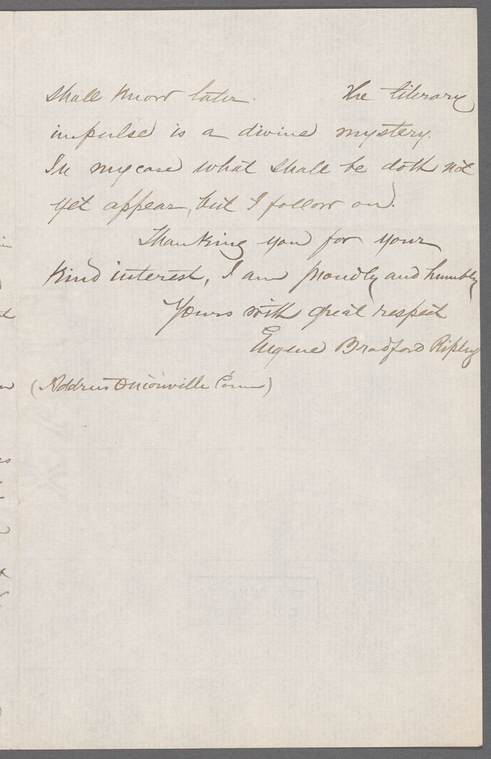 shall know later. The literary
impulse is a divine mystery.
In my case what shall be doth not
yet appear, but I follow on.
Thanking you for your
kind interest, I am proudly and humbly
Yours with great respect
Eugene Bradford Ripley
(Address Unionville Conn)